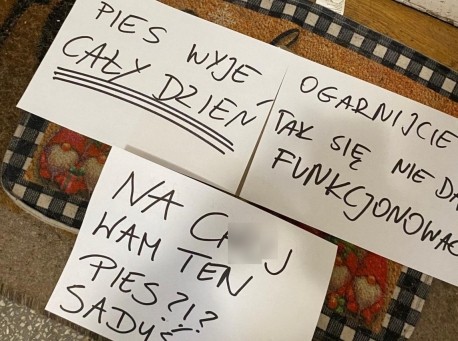 PIES WYJE
CAŁY DZIEŃ
OGARNIJCIE
TAK SIĘ NIE DA
FUNKCJONOWAĆ
NA C J
WAM TEN
PIES?!?